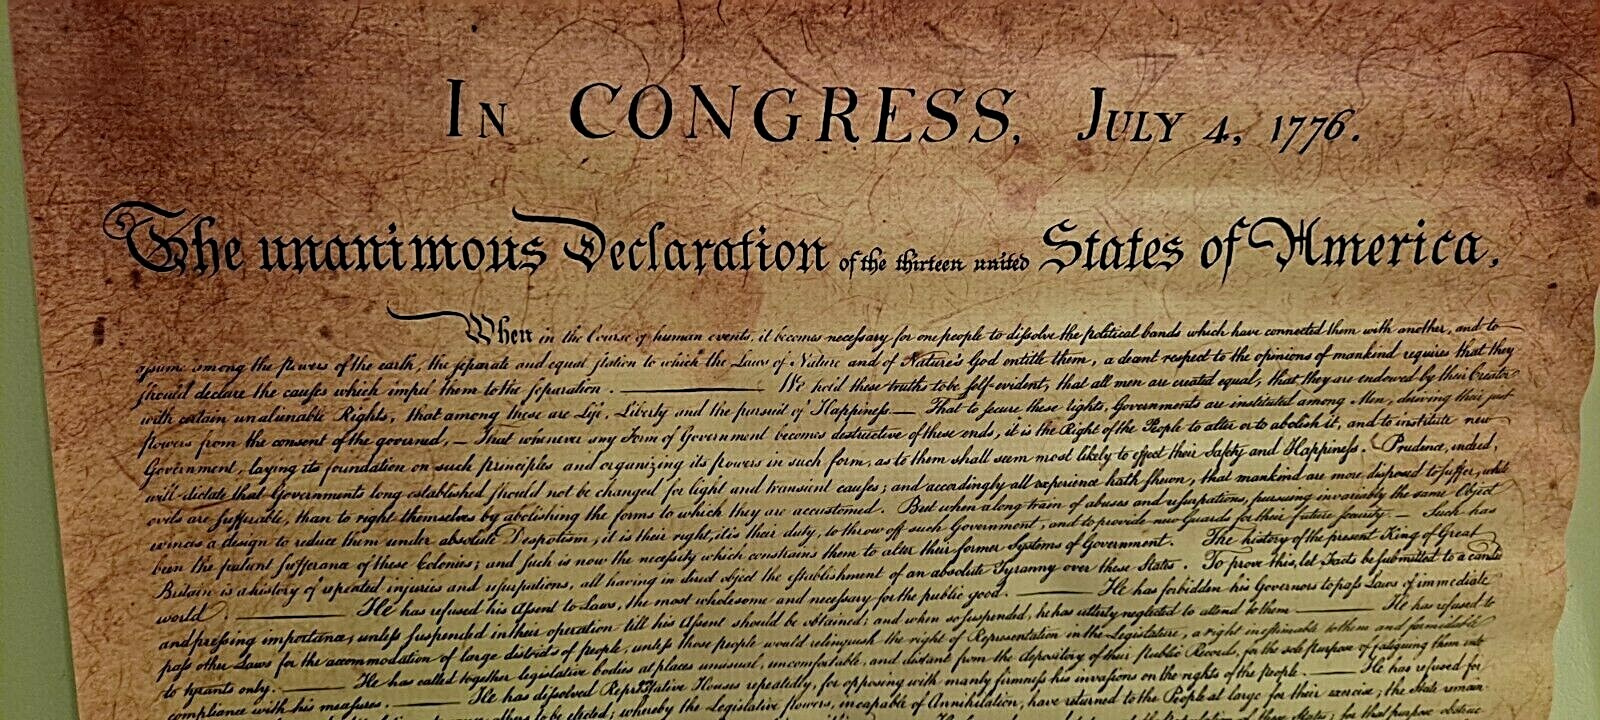 IN CONGRESS, JULY 4, 1776.
The unanimous Declaration of the thirteen united States of America,
When in the Course of human events, it becomes necessary for one people to dissolve the political bands which have connected them with another, and to
assume among the powers of the earth, the separate and equal station to which the Laws of Nature and of Nature's God entitle them, a decent respect to the opinions of mankind requires that they
should declare the causes which impel them to the separation. ——— We hold these truths to be self-evident, that all men are created equal, that they are endowed by their Creator
with certain unalienable Rights, that among these are Life, Liberty and the pursuit of Happiness.— That to secure these rights, Governments are instituted among Men, deriving their just
powers from the consent of the governed, — That whenever any Form of Government becomes destructive of these ends, it is the Right of the People to alter or to abolish it, and to institute new
Government, laying its foundation on such principles and organizing its powers in such form, as to them shall seem most likely to effect their Safety and Happiness. Prudence, indeed,
will dictate that Governments long established should not be changed for light and transient causes; and accordingly all experience hath shewn, that mankind are more disposed to suffer, while
evils are sufferable, than to right themselves by abolishing the forms to which they are accustomed. But when a long train of abuses and usurpations, pursuing invariably the same Object
evinces a design to reduce them under absolute Despotism, it is their right, it is their duty, to throw off such Government, and to provide new Guards for their future security. — Such has
been the patient sufferance of these Colonies; and such is now the necessity which constrains them to alter their former Systems of Government. The history of the present King of Great
Britain is a history of repeated injuries and usurpations, all having in direct object the establishment of an absolute Tyranny over these States. To prove this, let Facts be submitted to a candid
world. ——— He has refused his Assent to Laws, the most wholesome and necessary for the public good. ——— He has forbidden his Governors to pass Laws of immediate
and pressing importance, unless suspended in their operation till his Assent should be obtained; and when so suspended, he has utterly neglected to attend to them ——— He has refused to
pass other Laws for the accommodation of large districts of people, unless those people would relinquish the right of Representation in the Legislature, a right inestimable to them and formidable
to tyrants only. ——— He has called together legislative bodies at places unusual, uncomfortable, and distant from the depository of their Public Records, for the sole purpose of fatiguing them into
compliance with his measures. ——— He has dissolved Representative Houses repeatedly, for opposing with manly firmness his invasions on the rights of the people. ——— He has refused for
to be elected; whereby the Legislative powers, incapable of Annihilation, have returned to the People at large for their exercise; the State remain
of these States; for that purpose obstruc